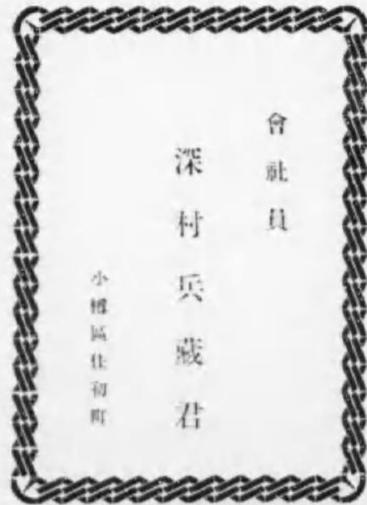 會社員
深村兵藏君
小樽區住初町